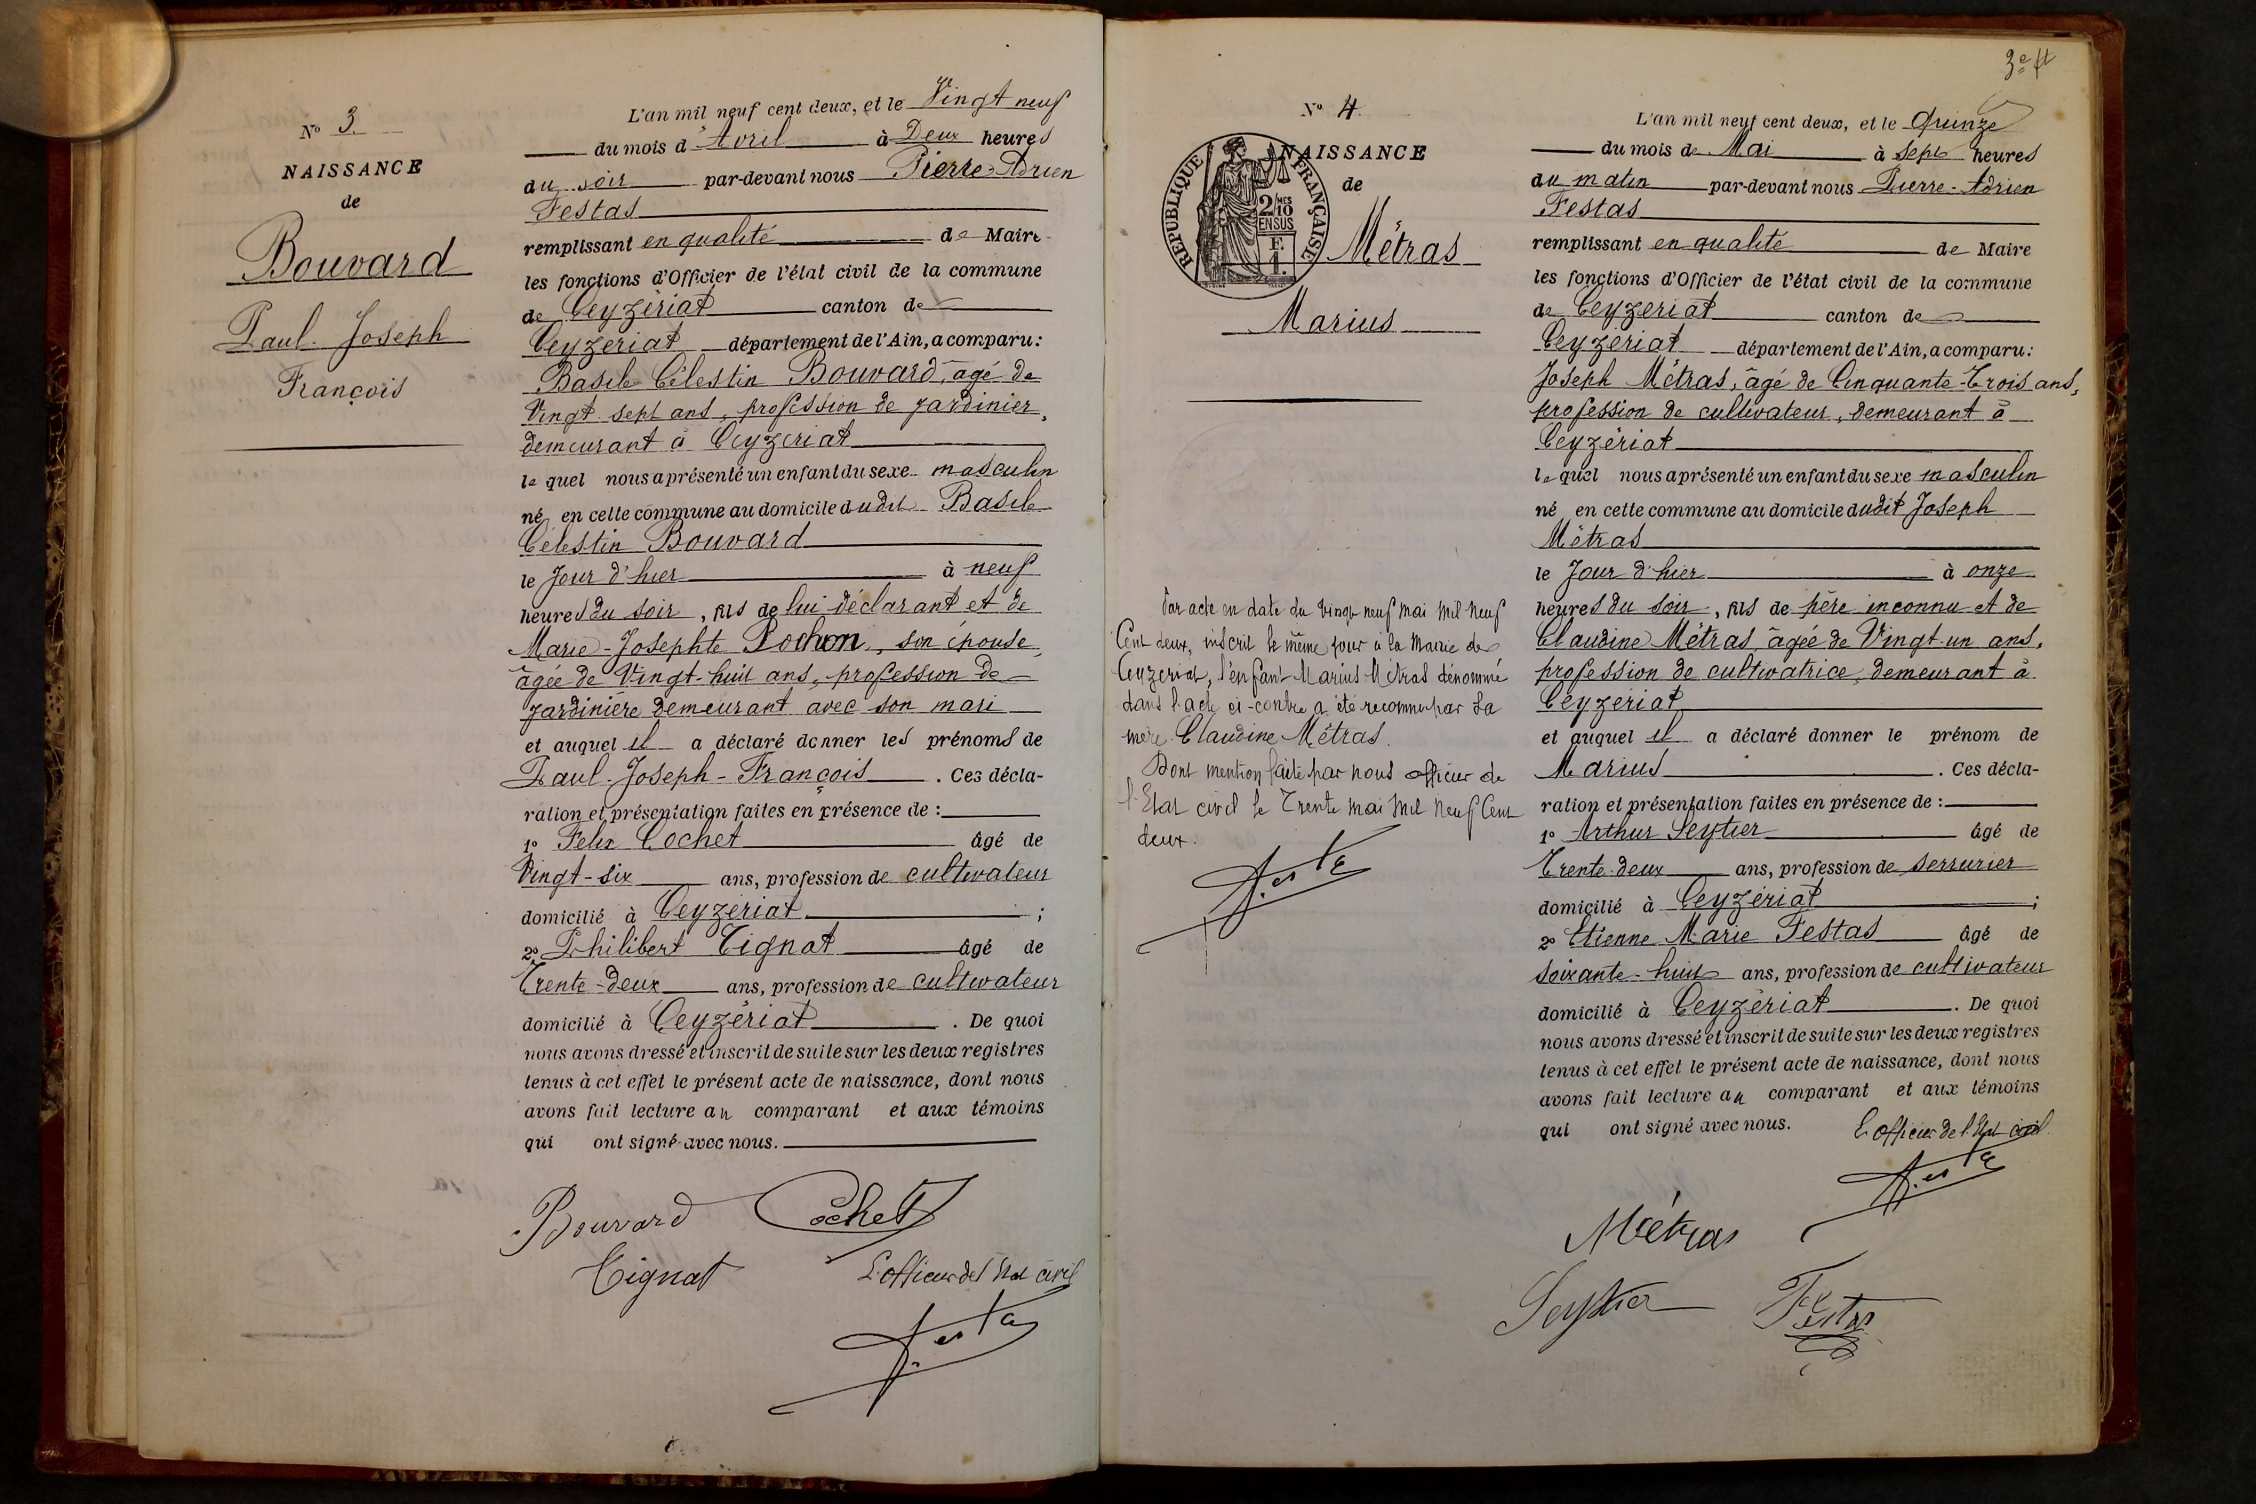 N° 3.
NAISSANCE
de
Bouvard
Paul-Joseph
François
L'an mil neuf cent deux, et le Vingt neuf
du mois d'Avril à Deux heures
du soir par-devant nous Pierre-Adrien
Festas
remplissant en qualité de Maire
les fonctions d'Officier de l'état civil de la commune
de Ceyzériat canton de
Ceyzériat département de l'Ain, a comparu:
Basile Célestin Bouvard, âgé de
Vingt-sept ans, profession de jardinier,
demeurant à Ceyzériat
le quel nous a présenté un enfant du sexe masculin
né en cette commune au domicile dudit Basile
Célestin Bouvard
le Jour d'hier à neuf
heures du soir, fils de lui déclarant et de
Marie-Josephte Pochon, son épouse,
âgée de Vingt-huit ans, profession de
jardinière demeurant avec son mari
et auquel il a déclaré donner les prénoms de
Paul-Joseph-François. Ces décla-
ration et présentation faites en présence de :
1° Felix Cochet âgé de
Vingt-six ans, profession de cultivateur
domicilié à Ceyzériat ;
2° Philibert Tignat âgé de
Trente-deux ans, profession de cultivateur
domicilié à Ceyzériat. De quoi
nous avons dressé et inscrit de suite sur les deux registres
tenus à cet effet le présent acte de naissance, dont nous
avons fait lecture au comparant et aux témoins
qui ont signé avec nous.
Bouvard Cochet
Tignat L'officier de l'Etat civil
Festas
3e
N° 4.
NAISSANCE
de
RÉPUBLIQUE FRANÇAISE
2/10 MES
EN SUS
F.
1.
Métras
Marius
Par acte en date du vingt neuf mai mil neuf
Cent deux, inscrit le même jour à la Mairie de
Ceyzeriat, l'enfant Marius Métras dénommé
dans l'acte ci-contre a été reconnu par sa
mère Claudine Métras.
Dont mention faite par nous officier de
l'Etat civil le Trente mai mil neuf Cent
deux.
Festas
L'an mil neuf cent deux, et le Quinze
du mois de Mai à sept heures
du matin par-devant nous Pierre-Adrien
Festas
remplissant en qualité de Maire
les fonctions d'Officier de l'état civil de la commune
de Ceyzériat canton de
Ceyzériat département de l'Ain, a comparu:
Joseph Métras, âgé de Cinquante-Trois ans,
profession de cultivateur, demeurant à
Ceyzériat
le quel nous a présenté un enfant du sexe masculin
né en cette commune au domicile dudit Joseph
Métras
le Jour d'hier à onze
heures du soir, fils de père inconnu et de
Claudine Métras âgée de Vingt-un ans,
profession de cultivatrice, demeurant à
Ceyzériat
et auquel il a déclaré donner le prénom de
Marius. Ces décla-
ration et présentation faites en présence de :
1° Arthur Seytier âgé de
Trente-deux ans, profession de serrurier
domicilié à Ceyzériat ;
2° Etienne Marie Festas âgé de
soixante-huit ans, profession de cultivateur
domicilié à Ceyzériat. De quoi
nous avons dressé et inscrit de suite sur les deux registres
tenus à cet effet le présent acte de naissance, dont nous
avons fait lecture au comparant et aux témoins
qui ont signé avec nous. L'officier de l'Etat civil
Festas
Métras
Seytier Festas